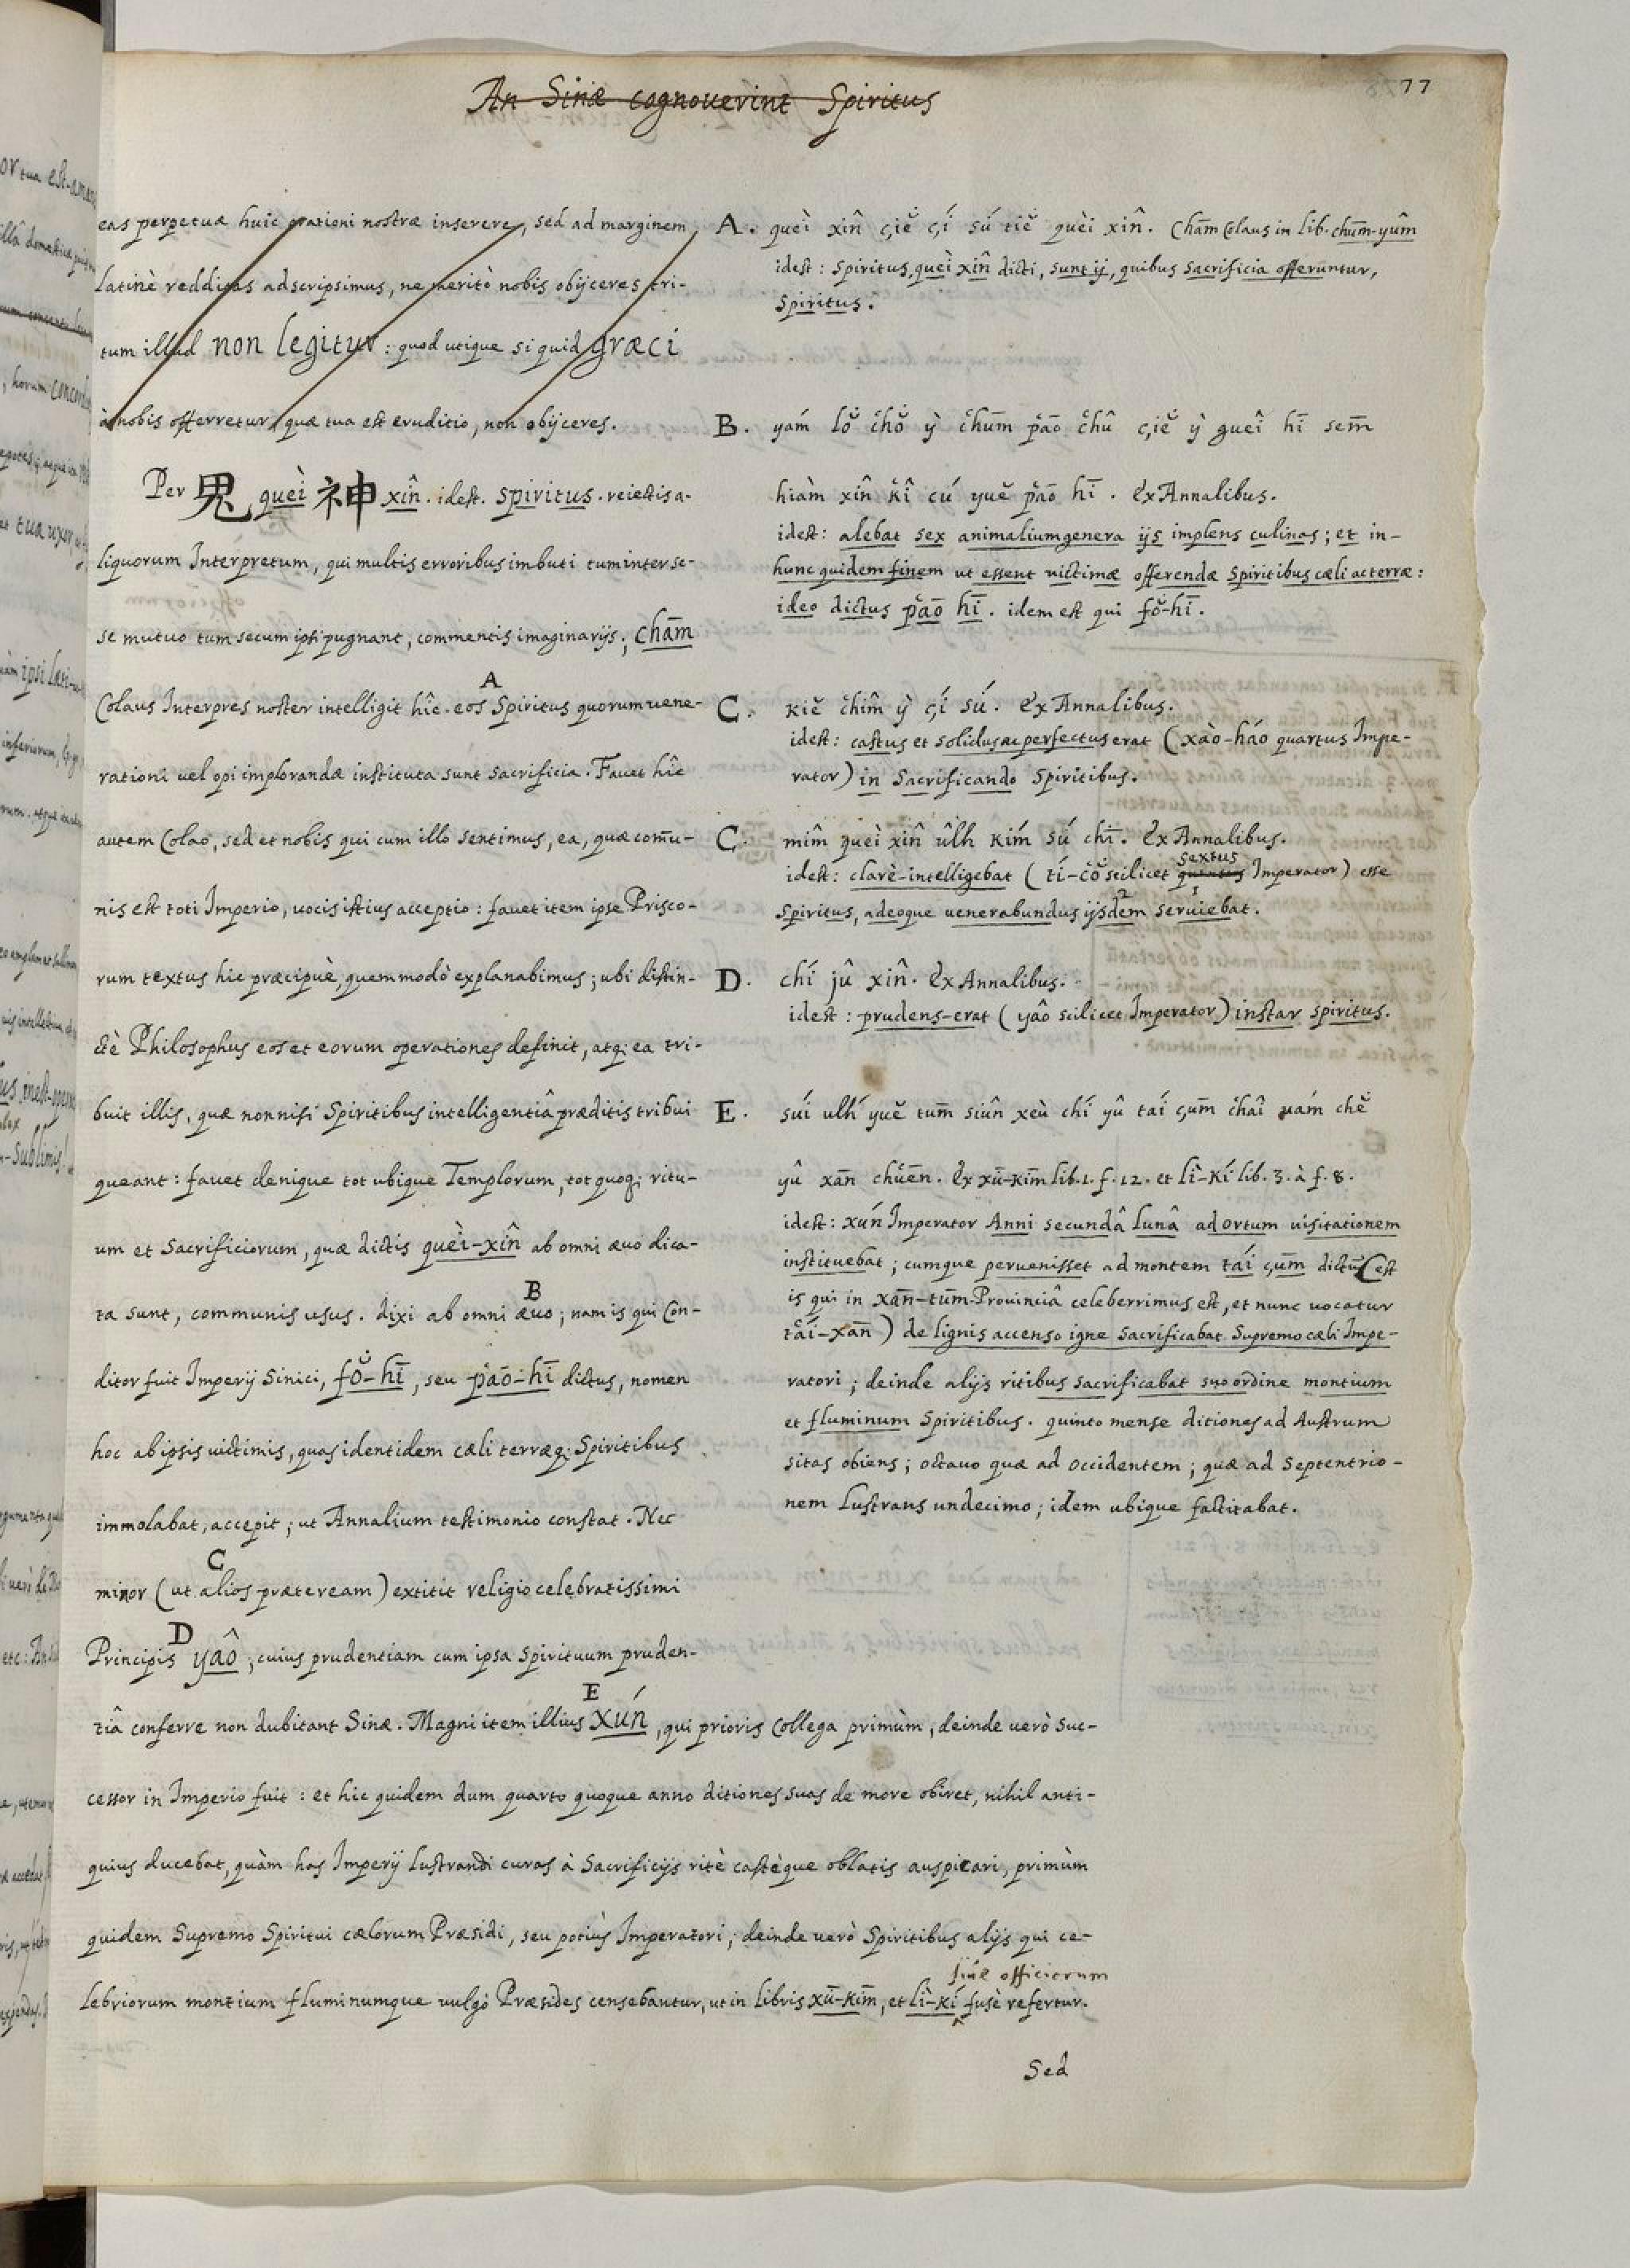 An Sinæ cognoverint Spiritus
77
eas perpetuæ huic orationi nostræ inserere, sed ad marginem
Latinè redditas adscripsimus, ne meritò nobis obijceres tri-
tum illud non legitur: quod utique si quid græci
à nobis offerretur, quæ tua est eruditio, non obijceres.
Per 鬼 quèi 神 xîn. idest. spiritus. reiectis a-
liquorum Interpretum, qui multis erroribus imbuti tum inter se-
se mutuo tum secum ipsi pugnant, commentis imaginarijs; Chām
A
Colaus Interpres noster intelligit hîc eos Spiritus quorum vene-
rationi vel opi implorandæ instituta sunt sacrificia. Favet hîc
autem Colao, sed et nobis qui cum illo sentimus, ea, quæ com̃u-
nis est toti Imperio, vocis istius acceptio: favet item ipse Prisco-
rum textus hic præcipuè, quem modò explanabimus; ubi distin-
ctè Philosophus eos et eorum operationes definit, atq; ea tri-
buit illis, quæ non nisi Spiritibus intelligentiâ præditis tribui
queant: favet denique tot ubique Templorum, tot quoq; ritu-
um et Sacrificiorum, quæ dictis quèi-xîn ab omni ævo dica-
B
ta sunt, communis usus. dixi ab omni ævo; nam is qui Con-
ditor fuit Imperij Sinici, fŏ-hī, seu pāo-hī dictus, nomen
hoc ab ipsis victimis, quas identidem cæli terræq; Spiritibus
immolabat, accepit; ut Annalium testimonio constat. Nec
C
minor (ut alios præteream) extitit religio celebratissimi
D
Principis yâo, cuius prudentiam cum ipsa spirituum pruden-
E
tiâ conferre non dubitant Sinæ. Magni item illius xún, qui prioris Collega primùm, deinde verò suc-
cessor in Imperio fuit: et hic quidem dum quarto quoque anno ditiones suas de more obiret, nihil anti-
quius ducebat, quàm has Imperij lustrandi curas à Sacrificijs ritè castèque oblatis auspicari, primùm
quidem Supremo Spiritui cælorum Præsidi, seu potiùs Imperatori; deinde verò Spiritibus alijs qui ce-
sive officiorum
lebriorum montium fluminumque vulgò Præsides censebantur, ut in libris xū-kīm, et lì-kí fusè refertur.
Sed
A. quèi xîn çiĕ çí sú tiĕ quèi xîn. Chām Colaus in lib. chūm-yûm
idest: spiritus, quèi xîn dicti, sunt ij, quibus sacrificia offeruntur,
spiritus.
B. yám lŏ chŏ ỳ chūm pāo chû çiĕ ỳ quêi hī sēm
hiàm xîn kî cú yuĕ pāo hī. Ex Annalibus.
idest: alebat sex animalium genera ijs implens culinas; et in-
hunc quidem finem ut essent victimæ offerendæ spiritibus cæli ac terræ:
ideo dictus pāo hī. idem est qui fŏ-hī.
C. kiĕ chîm ỳ çí sú. Ex Annalibus.
idest: castus et solidus ac perfectus erat (xào-háo quartus Impe-
rator) in sacrificando spiritibus.
C. mîm quèi xîn ûlh kím sú chī. Ex Annalibus.
sextus
idest: clarè-intelligebat (tí-cŏ scilicet quintus Imperator) esse
spiritus, adeoque venerabundus ijsdem serviebat.
D. chí jû xîn. Ex Annalibus.
idest: prudens-erat (yâo scilicet Imperator) instar spiritus.
E. súi ulh́ yuĕ tūm siûn xeù chí yû tái çūm châi vám chĕ
yû xān chuēn. Ex xū-kīm lib. 1. f. 12. et lì-kí lib. 3. à f. 8.
idest: xún Imperator Anni secundâ lunâ ad ortum visitationem
instituebat; cumque pervenisset ad montem tái çūm dictũ (est
is qui in xān-tūm Provinciâ celeberrimus est, et nunc vocatur
tái-xān) de lignis accenso igne sacrificabat Supremo cæli Impe-
ratori; deinde alijs ritibus sacrificabat suo ordine montium
et fluminum Spiritibus. quinto mense ditiones ad Austrum
sitas obiens; octavo quæ ad Occidentem; quæ ad Septentrio-
nem lustrans undecimo; idem ubique factitabat.